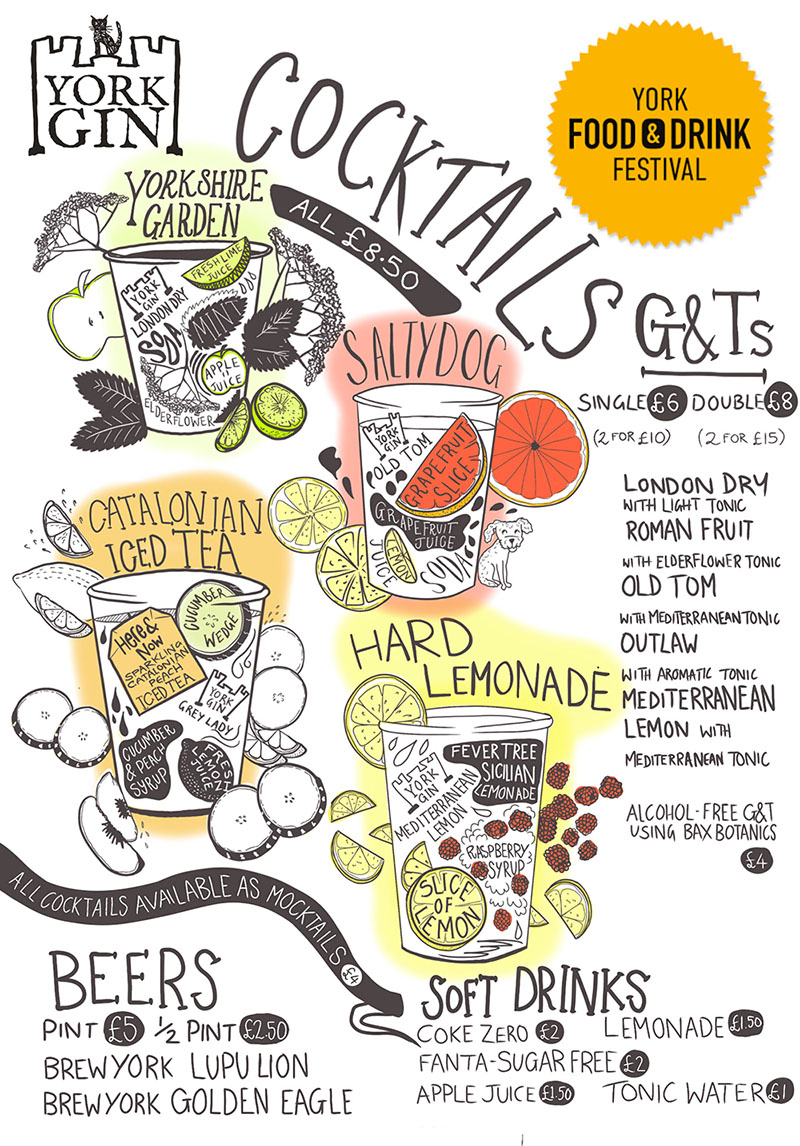 YORK
GIN
COCKTAILS
ALL £8.50
YORK
FOOD & DRINK
FESTIVAL
YORKSHIRE
GARDEN
FRESH LIME
JUICE
YORK
GIN
LONDON DRY
SODA
MINT
APPLE
JUICE
ELDERFLOWER
SALTY DOG
YORK
GIN
OLD TOM
GRAPEFRUIT
SLICE
GRAPEFRUIT
JUICE
LEMON
JUICE
SODA
CATALONIAN
ICED TEA
CUCUMBER
WEDGE
HERE &
NOW
SPARKLING
CATALONIAN
PEACH
ICED TEA
YORK
GIN
GREY LADY
CUCUMBER
& PEACH
SYRUP
LEMON
JUICE
HARD
LEMONADE
FEVERTREE
SICILIAN
LEMONADE
YORK
GIN
MEDITERRANEAN
LEMON
RASPBERRY
SYRUP
SLICE
OF
LEMON
G&Ts
SINGLE £6 DOUBLE £8
(2 FOR £10) (2 FOR £15)
LONDON DRY
WITH LIGHT TONIC
ROMAN FRUIT
WITH ELDERFLOWER TONIC
OLD TOM
WITH MEDITERRANEAN TONIC
OUTLAW
WITH AROMATIC TONIC
MEDITERRANEAN
LEMON WITH
MEDITERRANEAN TONIC
ALCOHOL-FREE G&T
USING BAX BOTANICS
£4
ALL COCKTAILS AVAILABLE AS MOCKTAILS £4
BEERS
PINT £5 ½ PINT £2.50
BREWYORK LUPULION
BREWYORK GOLDEN EAGLE
SOFT DRINKS
COKE ZERO £2 LEMONADE £1.50
FANTA-SUGAR FREE £2
APPLE JUICE £1.50 TONIC WATER £1